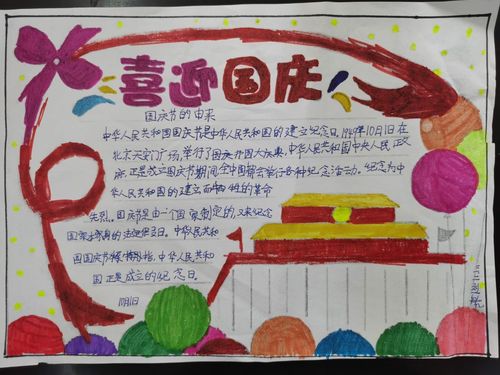 喜迎国庆
国庆节的由来
中华人民共和国国庆节是中华人民共和国的建立纪念日。1949年10月1日在
北京天安门广场,举行了国庆开国大典,中华人民共和国中央人民正政
府正是成立国庆节期间全中国都会举行各种纪念活动。纪念为中
华人民共和国的建立而牺牲的革命
先烈。国庆节是由一个国家制定的,来纪念
国家本身的法定假日。中华人民共和
国国庆节特指,中华人民共和
国正是成立的纪念日。
10月1日